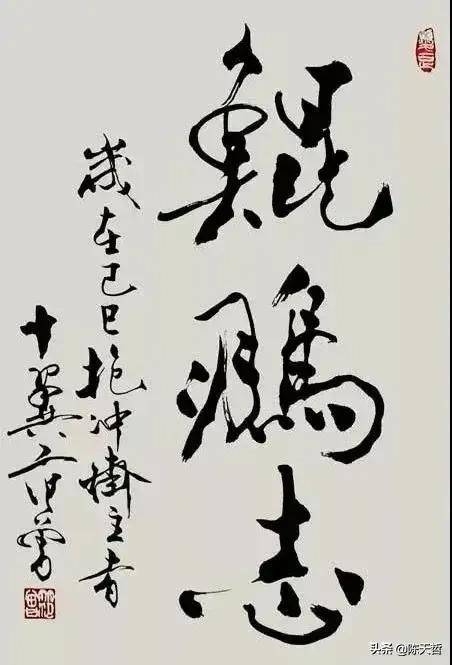 鯤鵬志
歲在己巳抱冲齋主
十翼范曾
范曾
头条 @陈天哲